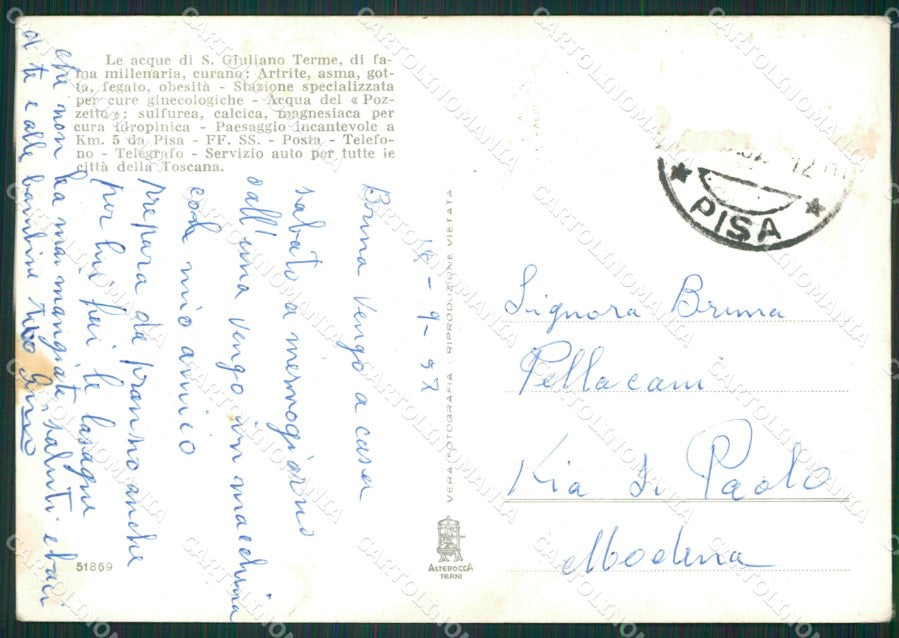 Le acque di S. Giuliano Terme, di fa-
ma millenaria, curano: Artrite, asma, got-
ta, fegato, obesità - Stazione specializzata
per cure ginecologiche - Acqua del « Poz-
zetto »: sulfurea, calcica, magnesiaca per
cura idropinica - Paesaggio incantevole a
Km. 5 da Pisa - FF. SS. - Posta - Telefo-
no - Telegrafo - Servizio auto per tutte le
città della Toscana.
18-9-57
Bruna vengo a casa
sabato a mezzogiorno
dall'una vengo in macchina
col mio amico
prepara da pranzo anche
per lui fai le lasagne
che non ha mai mangiate saluti e baci
a te e alle bambine tuo Gino
VERA FOTOGRAFIA - RIPRODUZIONE VIETATA
ALTEROCCA
TERNI
51869
PISA
Signora Bruna
Pellacani
Via S. Paolo
Modena
CARTOLINOMANIA